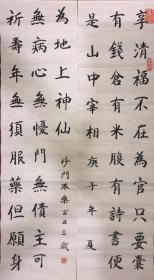 享清福不在為官只要囊
有錢倉有米腹有詩書便
是山中宰相 庚子年夏
祈壽年無須服藥但願身
無病心無憂門無債主可
為地上神仙
沙門本樂百又三歲